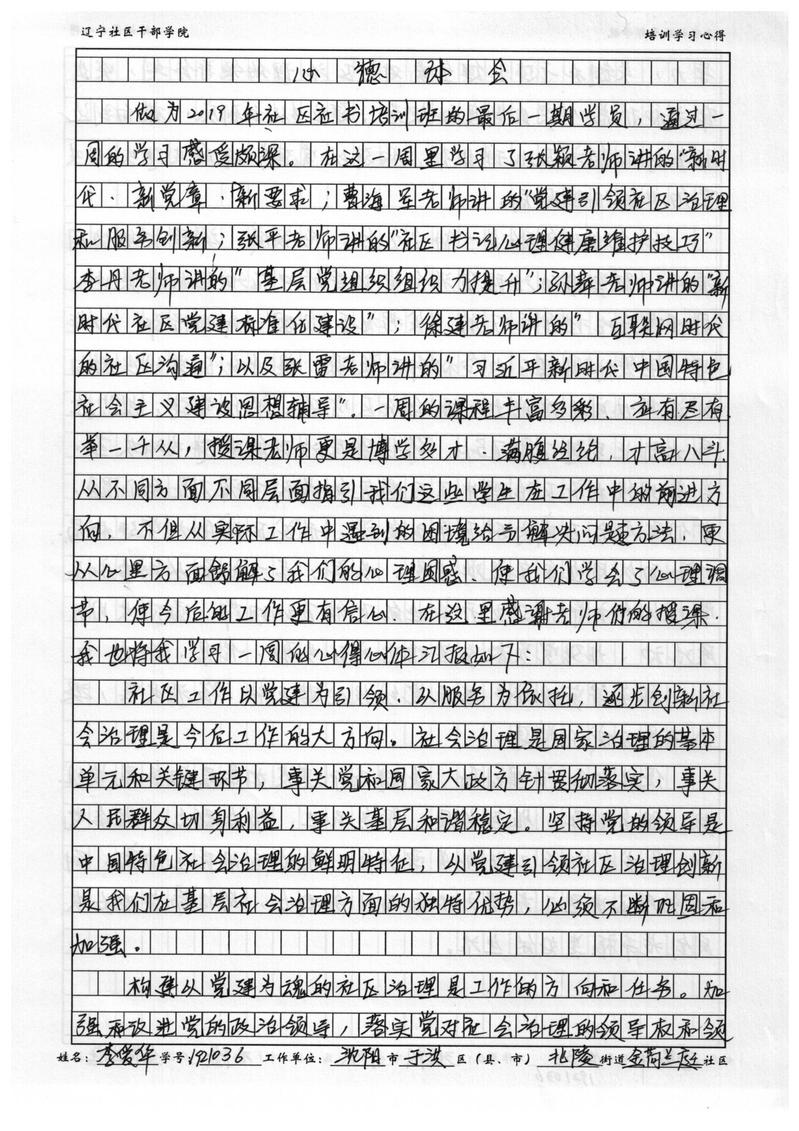 辽宁社区干部学院 培训学习心得
心德体会
做为2019年社区社书培训班的最后一期学员，通过一
周的学习感受颇深。在这一周里学习了张颖老师讲的"新时
代·新党章·新要求；曹海军老师讲的"党建引领社区治理
和服务创新；张平老师讲的"社区书记心理健康维护技巧"
李丹老师讲的"基层党组织组织力提升"；孙萍老师讲的"新
时代社区党建标准化建设"；徐建老师讲的"互联网时代
的社区沟通"；以及张雷老师讲的"习近平新时代中国特色
社会主义建设思想辅导"。一周的课程丰富多彩，应有尽有.
举一千从，授课老师更是博学多才·满腹经纶，才高八斗
从不同方面不同层面指引我们这些学生在工作中的前进方
向，不但从实际工作中遇到的困境给予解决问题方法，更
从心里方面舒解了我们的心理困惑.使我们学会了心理调
节，使今后的工作更有信心.在这里感谢老师们的授课.
我也将我学习一周的心得心体汇报如下：
社区工作以党建为引领.以服务为依托，逐步创新社
会治理是今后工作的大方向。社会治理是国家治理的基本
单元和关键环节，事关党和国家大政方针贯彻落实，事关
人民群众切身利益，事关基层和谐稳定。坚持党的领导是
中国特色社会治理的鲜明特征，以党建引领社区治理创新
是我们在基层社会治理方面的独特优势，必须不断巩固和
加强。
构建以党建为魂的社区治理是工作的方向和任务。加
强和改进党的政治领导，落实党对社会治理的领导权和领
姓名：李爱华 学号：1921036 工作单位：沈阳市于洪区（县、市）北陵街道金荷兰社区